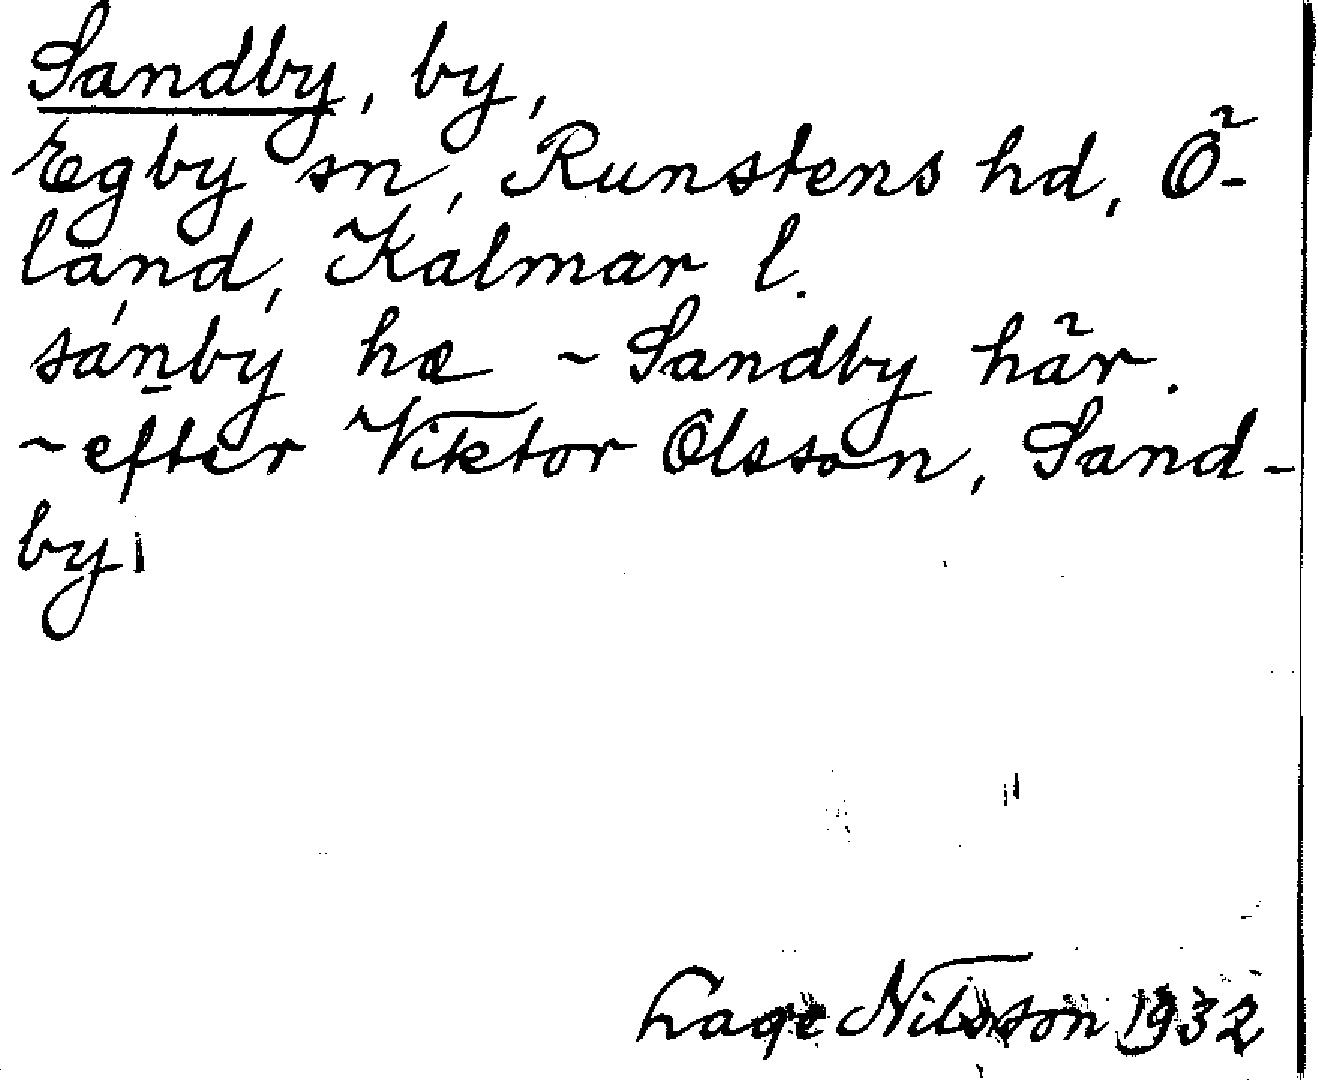 Sandby, by,
Egby sn, Runstens hd, Ö-
land, Kalmar l.
sánby hæ ~ Sandby här.
~ efter Viktor Olsson, Sand-
by.
Lage Nilsson 1932